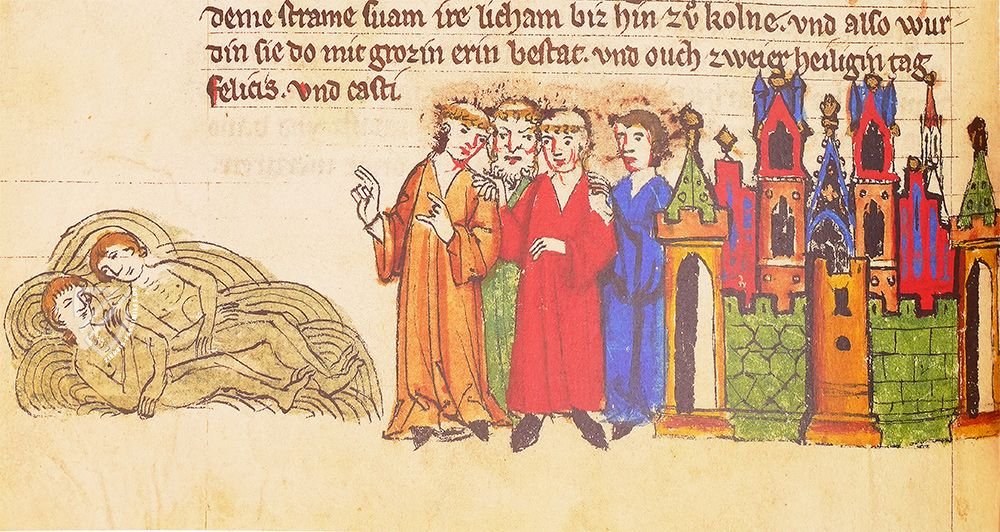 deme strame suam ire licham biz hin zů kolne. vnd also wur-
din sie do mit grozin erin bestat. vnd ouch zweier heiligin tag
felicis. vnd casti